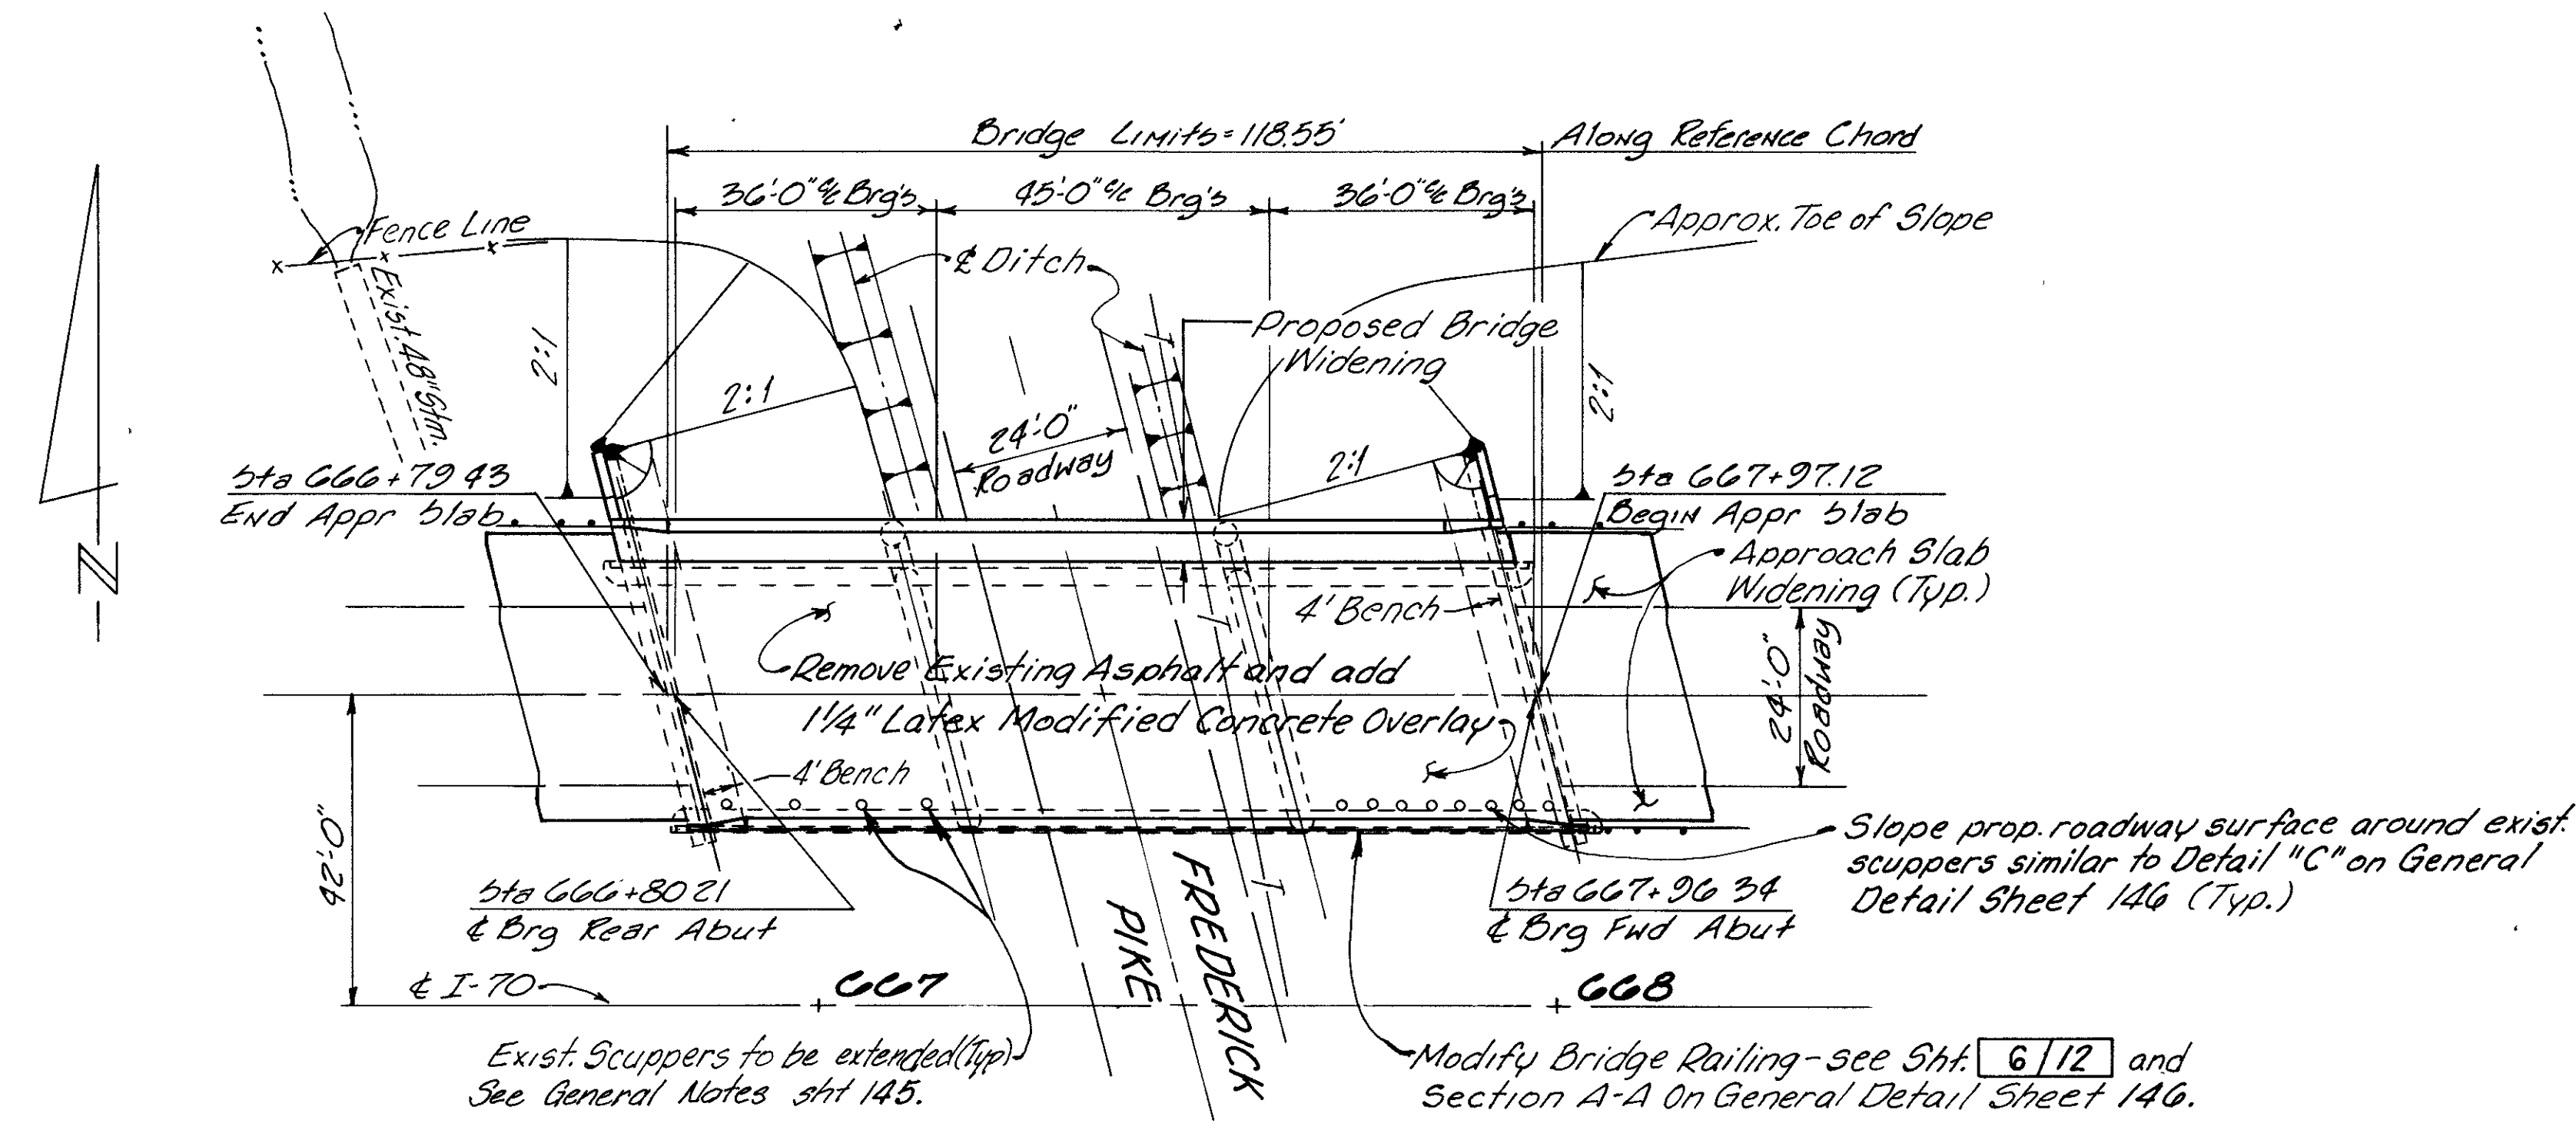 Bridge Limits=118.55'
Along Reference Chord
36'-0" c/c Brg's
45'-0" c/c Brg's
36'-0" c/c Brg's
Approx. Toe of Slope
Fence Line
℄ Ditch
Exist. 48" Stm.
2:1
2:1
Proposed Bridge
Widening
2:1
24'-0"
Roadway
2:1
Sta 666+79 43
End Appr Slab
Sta 667+97.12
Begin Appr Slab
Approach Slab
Widening (Typ.)
4' Bench
N
Remove Existing Asphalt and add
1 1/4" Latex Modified Concrete Overlay
24'-0"
Roadway
4' Bench
42'-0"
Slope prop. roadway surface around exist.
scuppers similar to Detail "C" on General
Detail Sheet 146 (Typ.)
Sta 666+80 21
℄ Brg Rear Abut
Sta 667+96 34
℄ Brg Fwd Abut
FREDERICK
PIKE
℄ I-70
667
668
Exist. Scuppers to be extended (Typ)
See General Notes sht 145.
Modify Bridge Railing-see Sht. 6/12 and
Section A-A On General Detail Sheet 146.